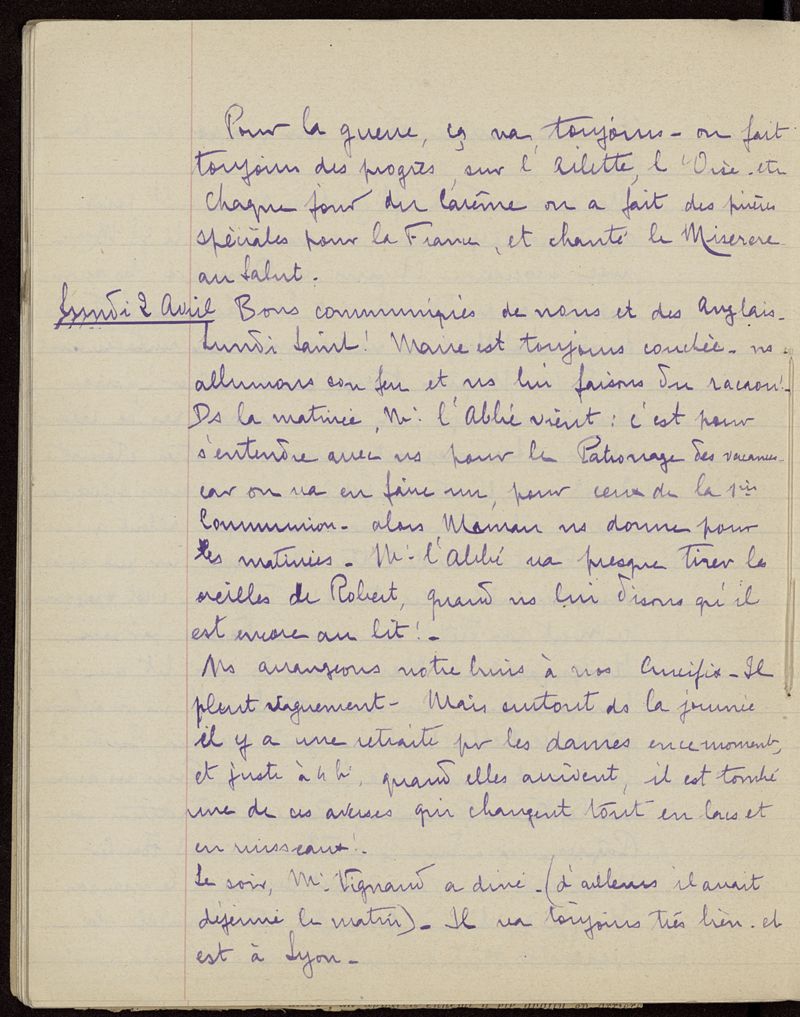 Pour la guerre, ça va, toujours - on fait
toujours des progrès, sur l'Ailette, l'Oise. etc
Chaque jour du Carême on a fait des prières
spéciales pour la France, et chanté le Miserere
au Salut.
Lundi 2 Avril Bons communiqués de nous et des Anglais -
Lundi Saint! Marie est toujours couchée - ns
allumons son feu et ns lui faisons du racaou! -
Ds la matinée, Mr l'Abbé vient : c'est pour
s'entendre avec ns pour le Patronage des vacances -
car on va en faire un, pour ceux de la 1ère
Communion - alors, Maman ns donne pour
les matinées - Mr l'Abbé va presque tirer les
oreilles de Robert, quand ns lui disons qu'il
est encore au lit! -
Ns arrangeons notre buis à nos Crucifix - Il
pleut vaguement - Mais surtout ds la journée
il y a une retraite pr les dames en ce moment,
et juste à 4 h, quand elles arrivent, il est tombé
une de ces averses qui changent tout en lacs et
en ruisseaux! -
Le soir, Mr Vignaud a diné - (d'ailleurs il avait
déjeuné le matin) - Il va toujours très bien - et
est à Lyon -